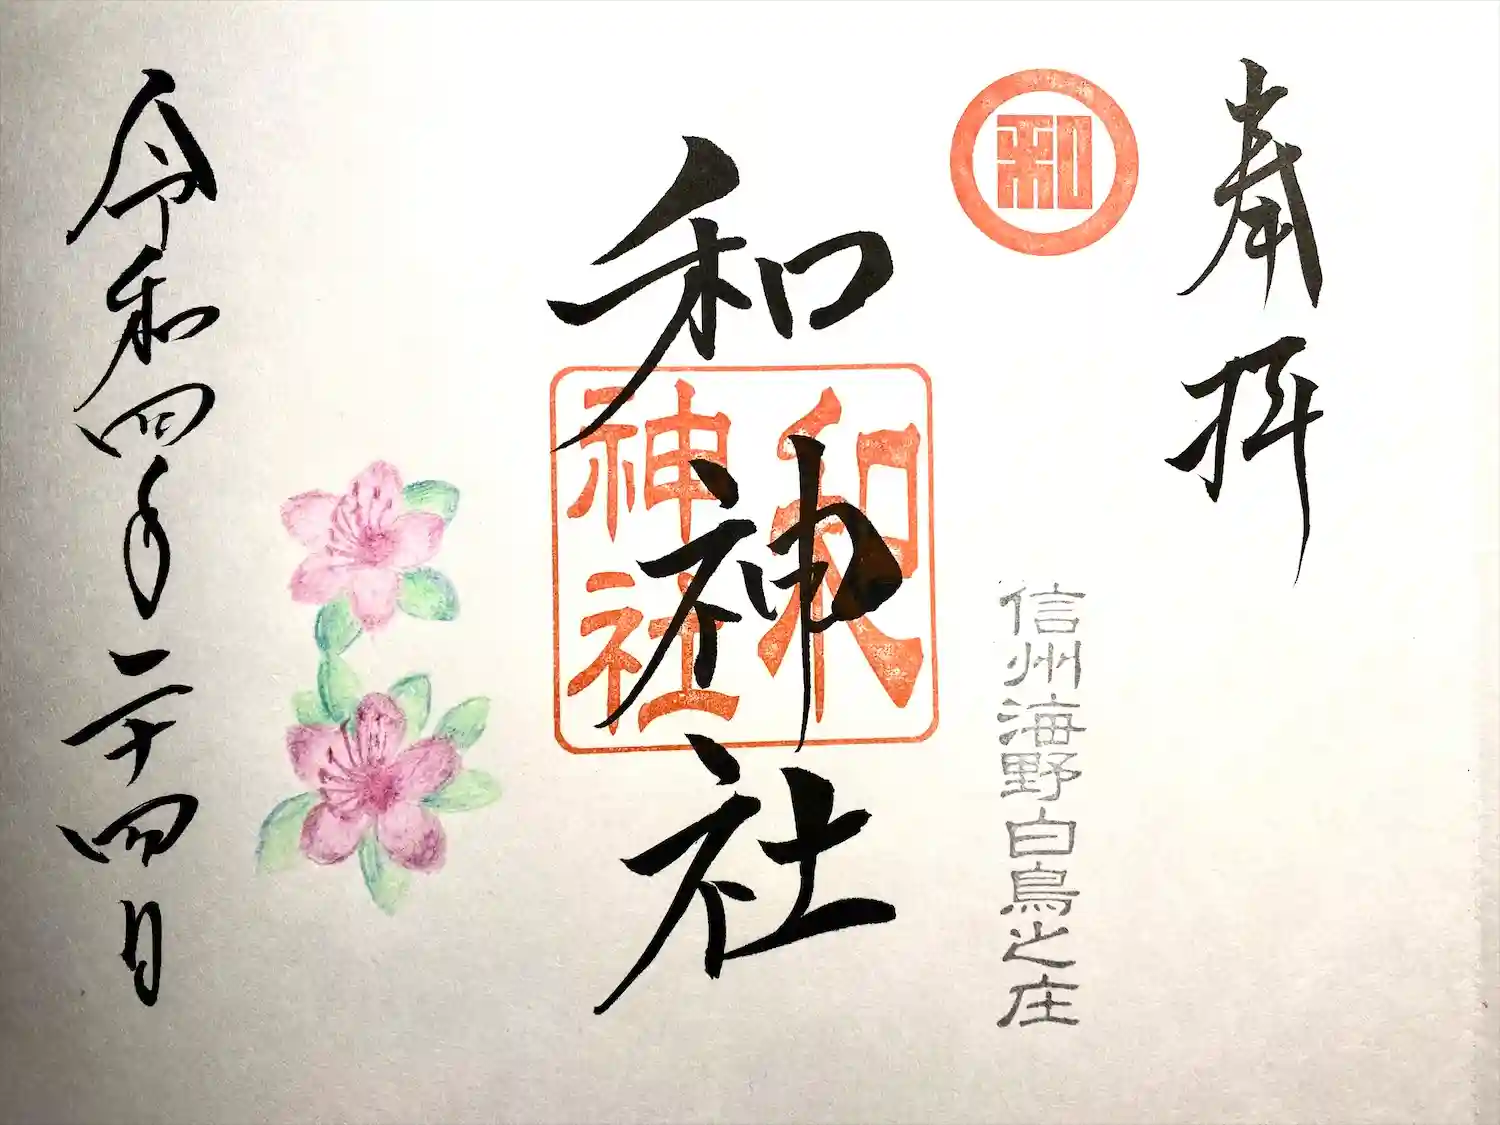 奉拝
和
信州海野白鳥之庄
和神社
和
神社
令和四年二十四日